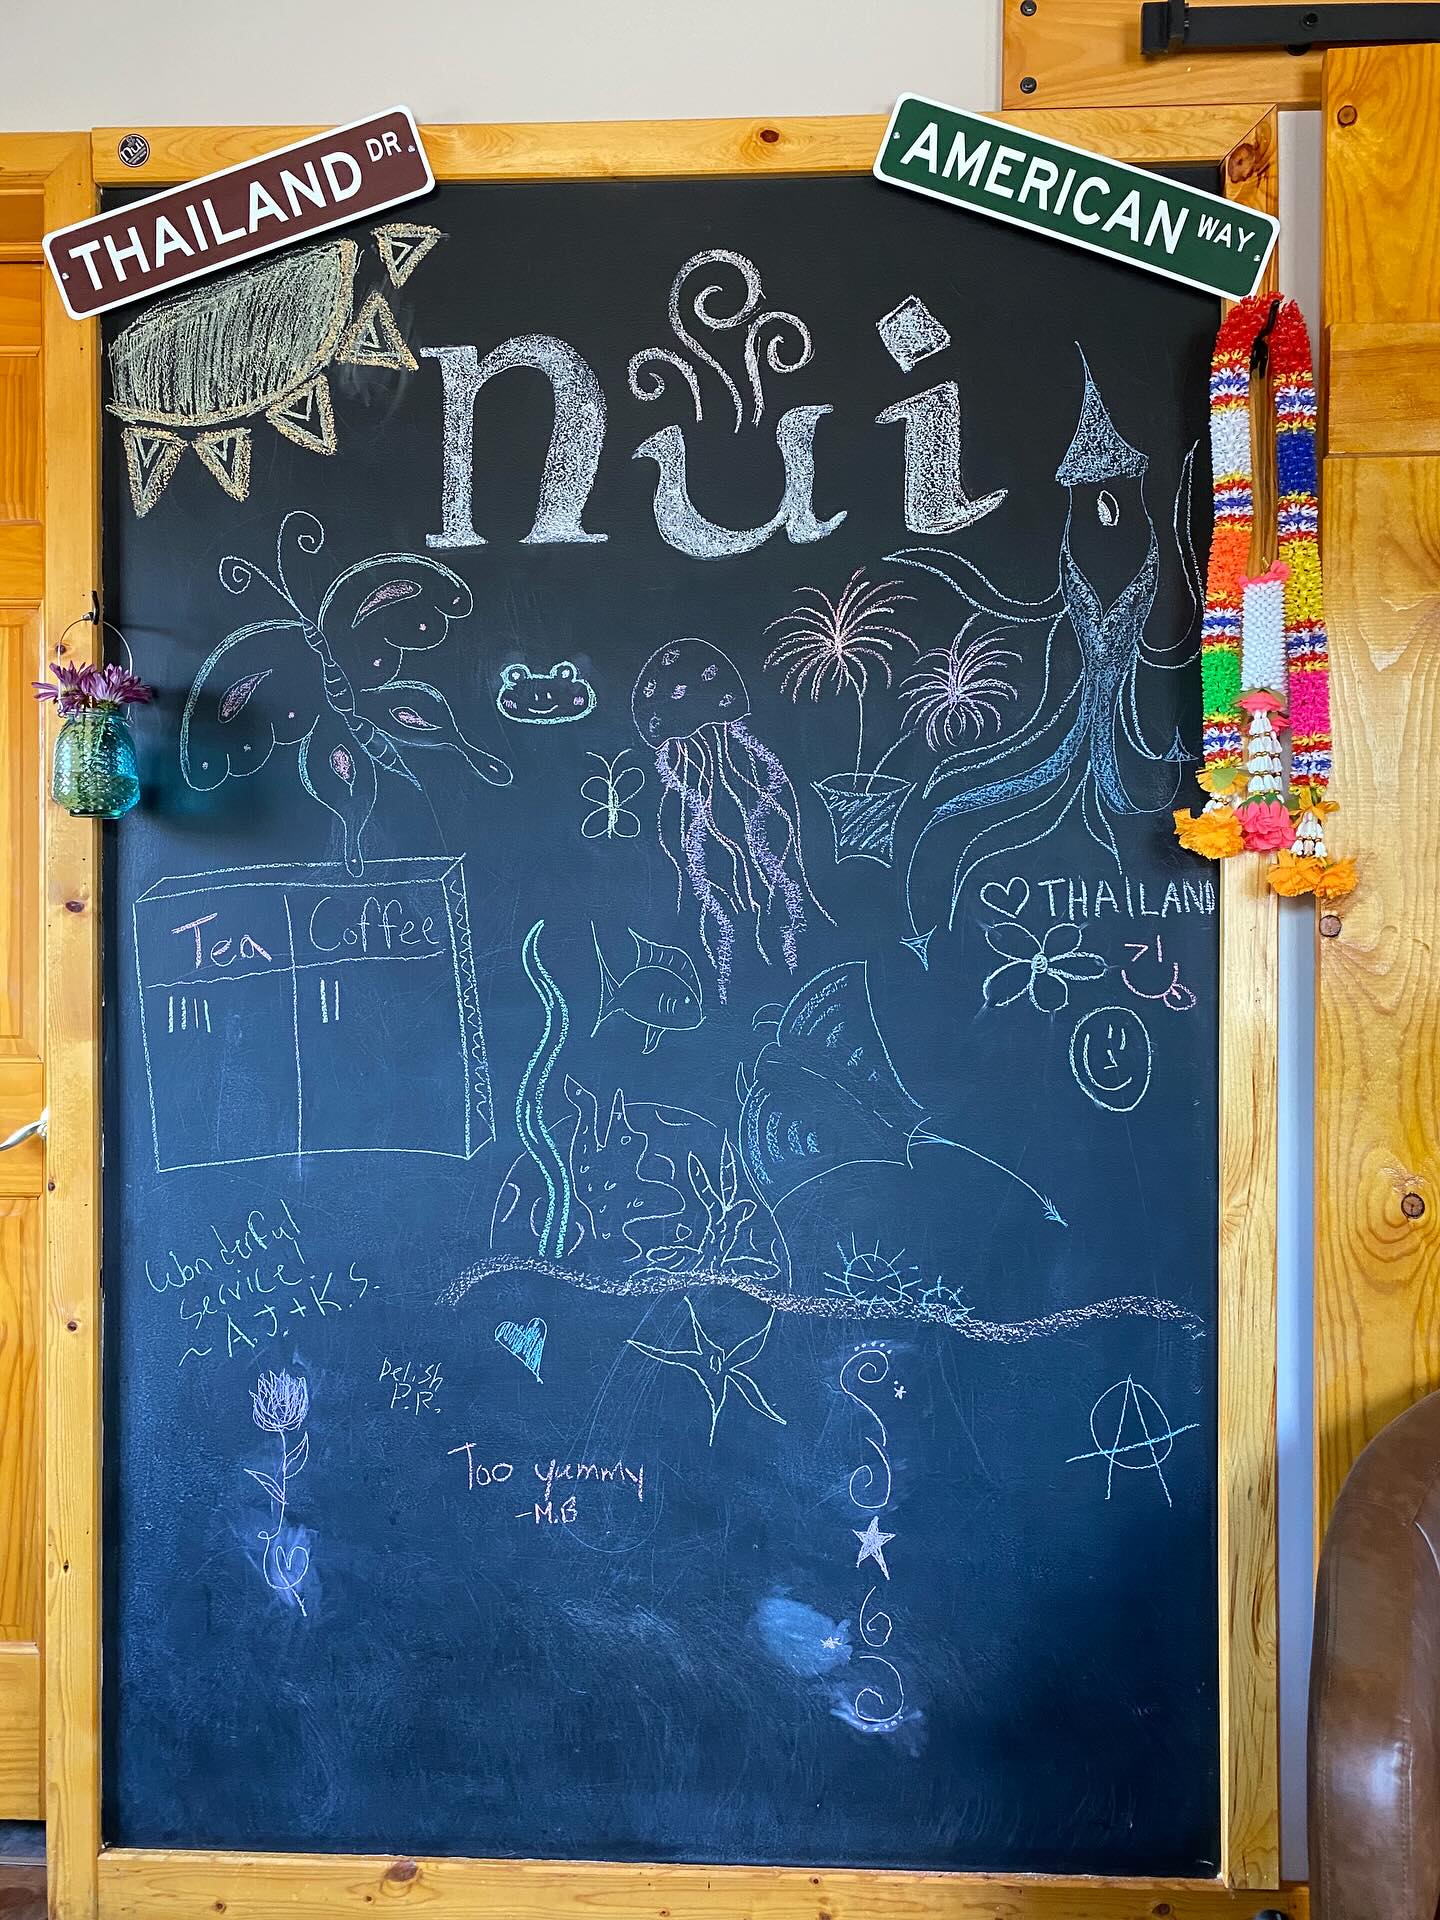 THAILAND DR.
AMERICAN WAY
nui
nui
Tea
Coffee
♡ THAILAND
Wonderful
service!
~ A.J. + K.S.
Delish
P.R.
Too yummy
-M.B